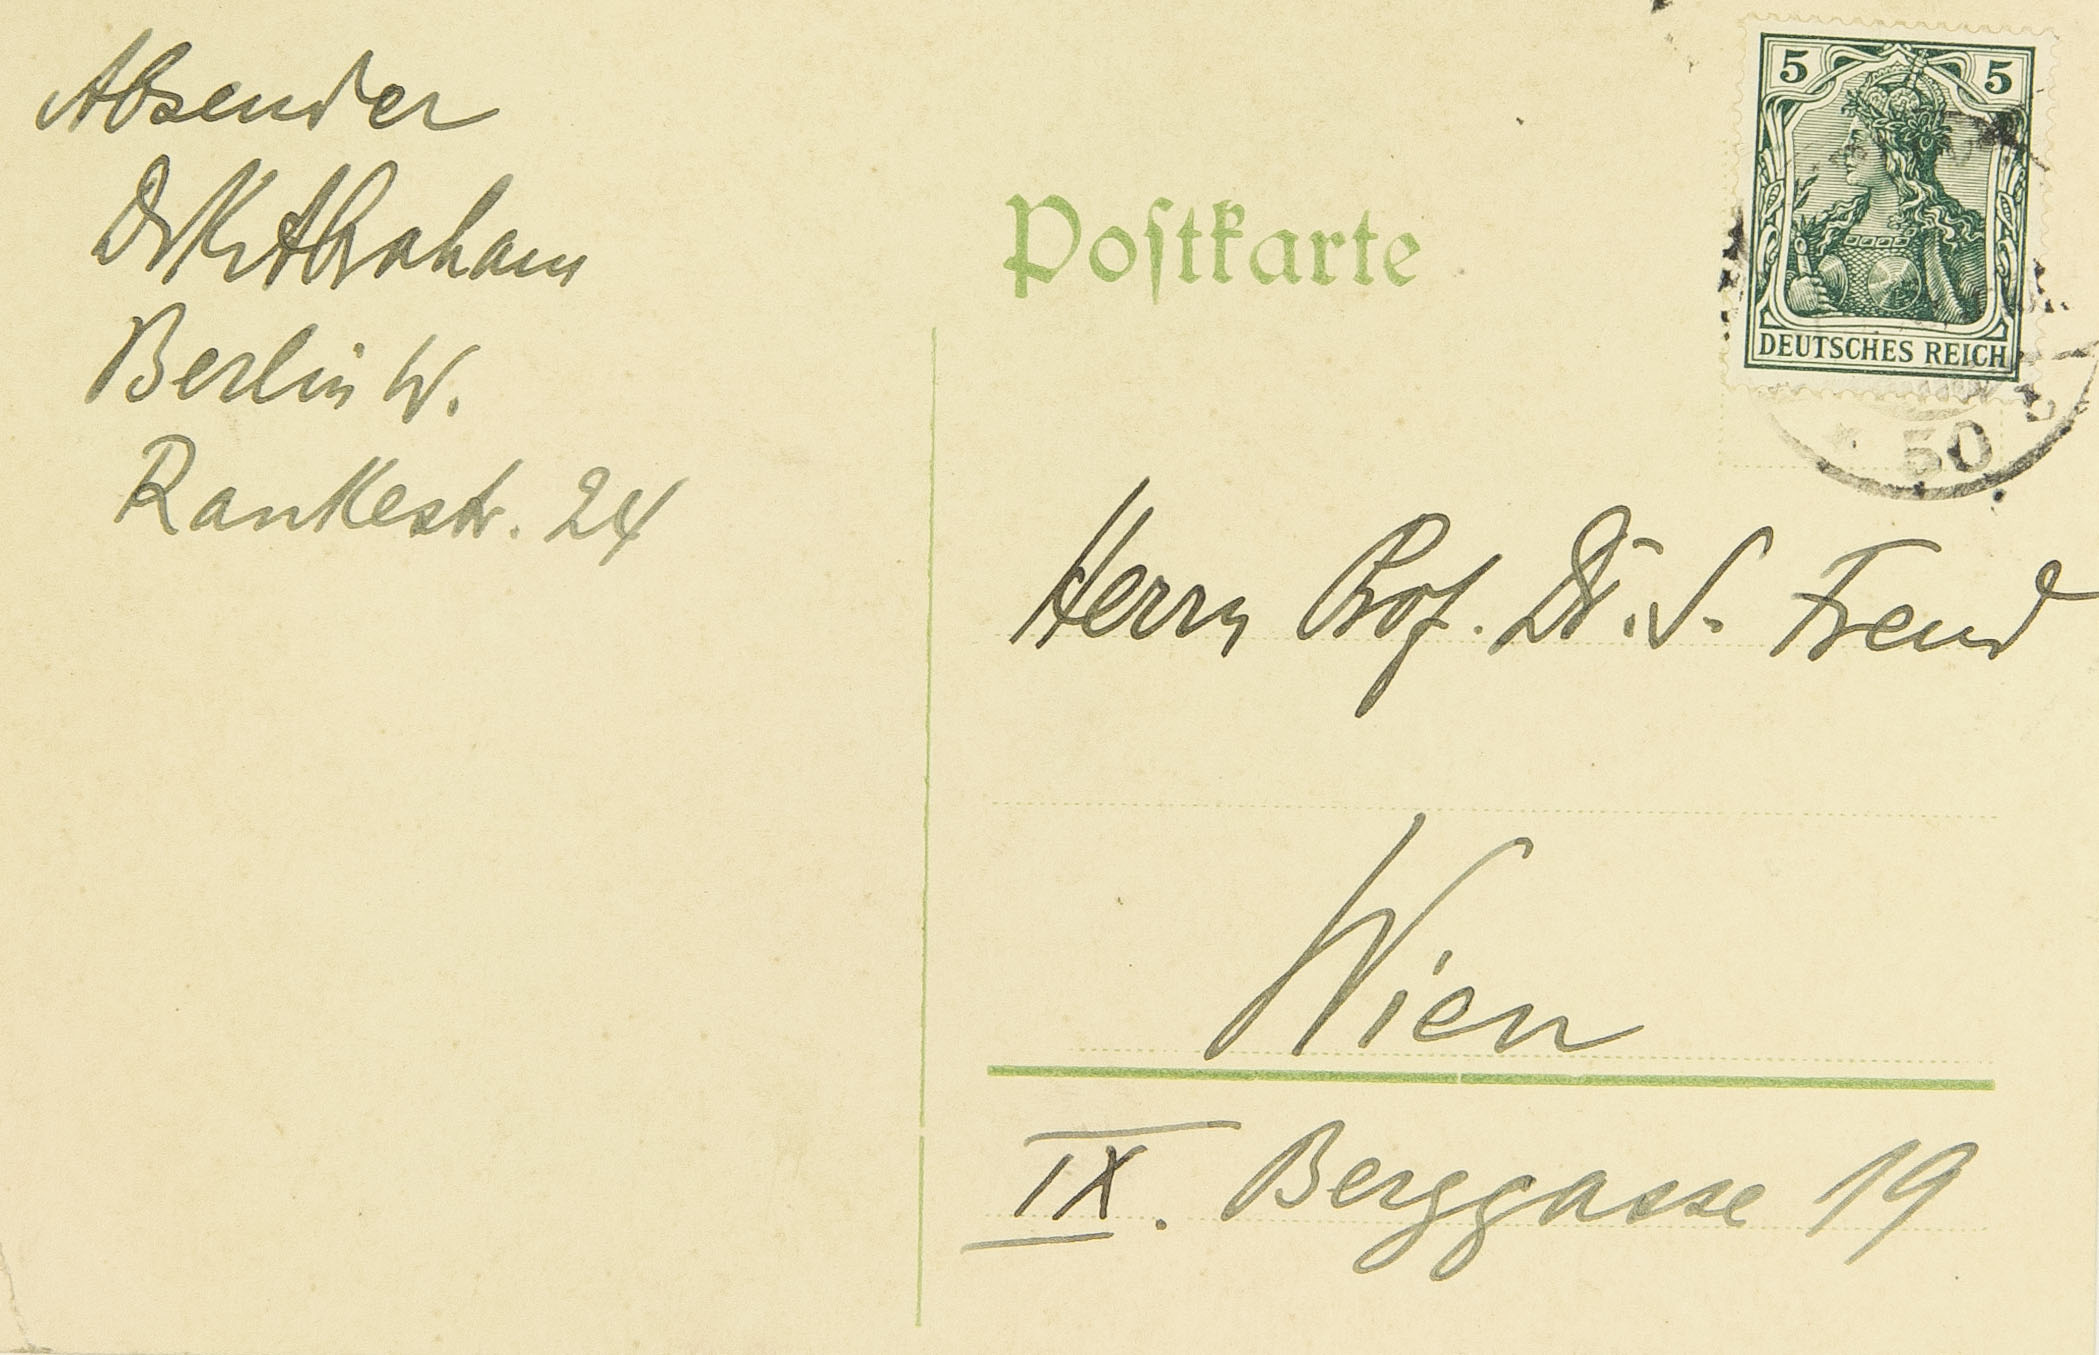 Absender
Dr K. Abraham
Berlin W.
Rankestr. 24
Postkarte
5 5
DEUTSCHES REICH
50
Herrn Prof. Dr. S. Freud
Wien
IX. Berggasse 19